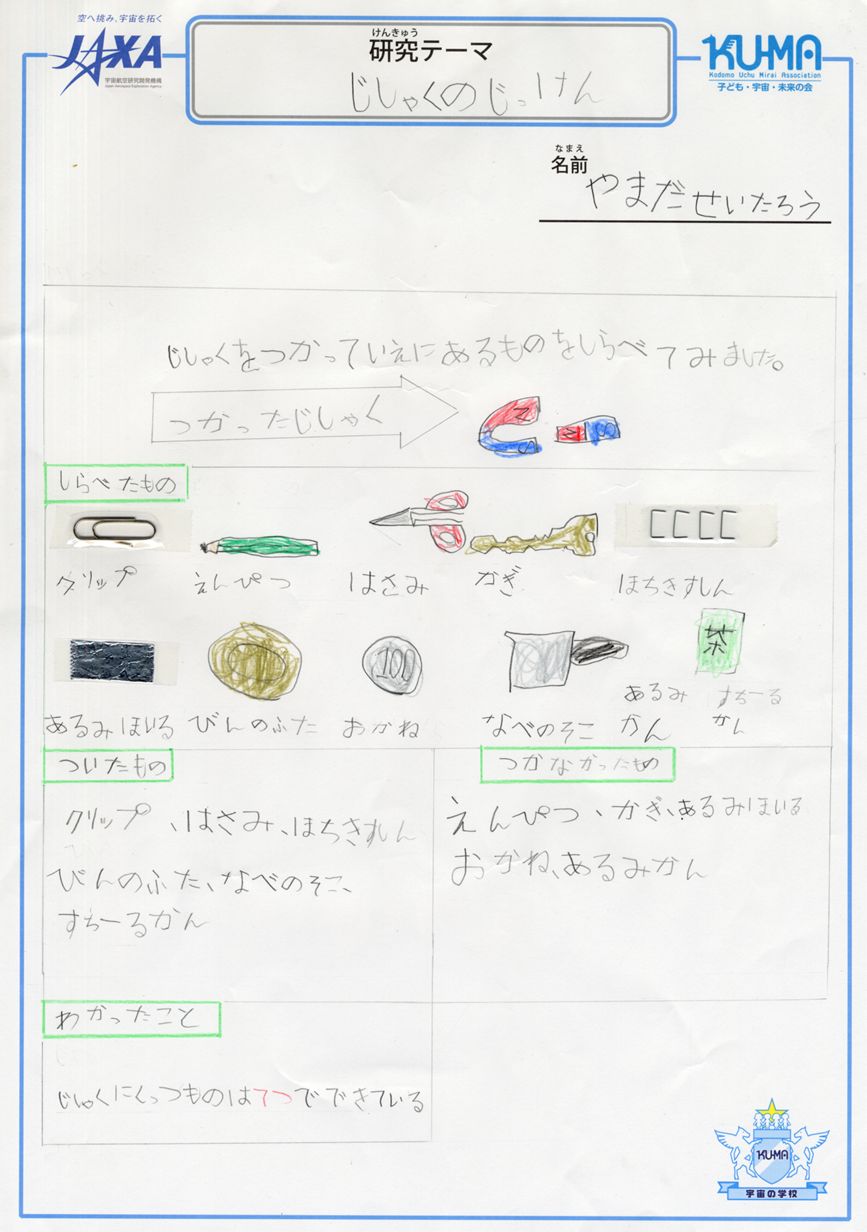 空へ挑み、宇宙を拓く
JAXA
宇宙航空研究開発機構
Japan Aerospace Exploration Agency
けんきゅう
研究テーマ
じしゃくのじっけん
KU-MA
Kodomo Uchu Mirai Association
子ども・宇宙・未来の会
なまえ
名前
やまだせいたろう
じしゃくをつかっていえにあるものをしらべてみました。
つかったじしゃく
N
S
N
S
しらべたもの
クリップ
えんぴつ
はさみ
かぎ
ほちきすしん
100
茶
あるみほいる
びんのふた
おかね
なべのそこ
あるみかん
すちーるかん
ついたもの
クリップ、はさみ、ほちきれん
びんのふた、なべのそこ、
すちーるかん
つかなかったもの
えんぴつ、かぎ、あるみほいる
おかね、あるみかん
わかったこと
じしゃくにくっつものはてつでできている
KU-MA
宇宙の学校